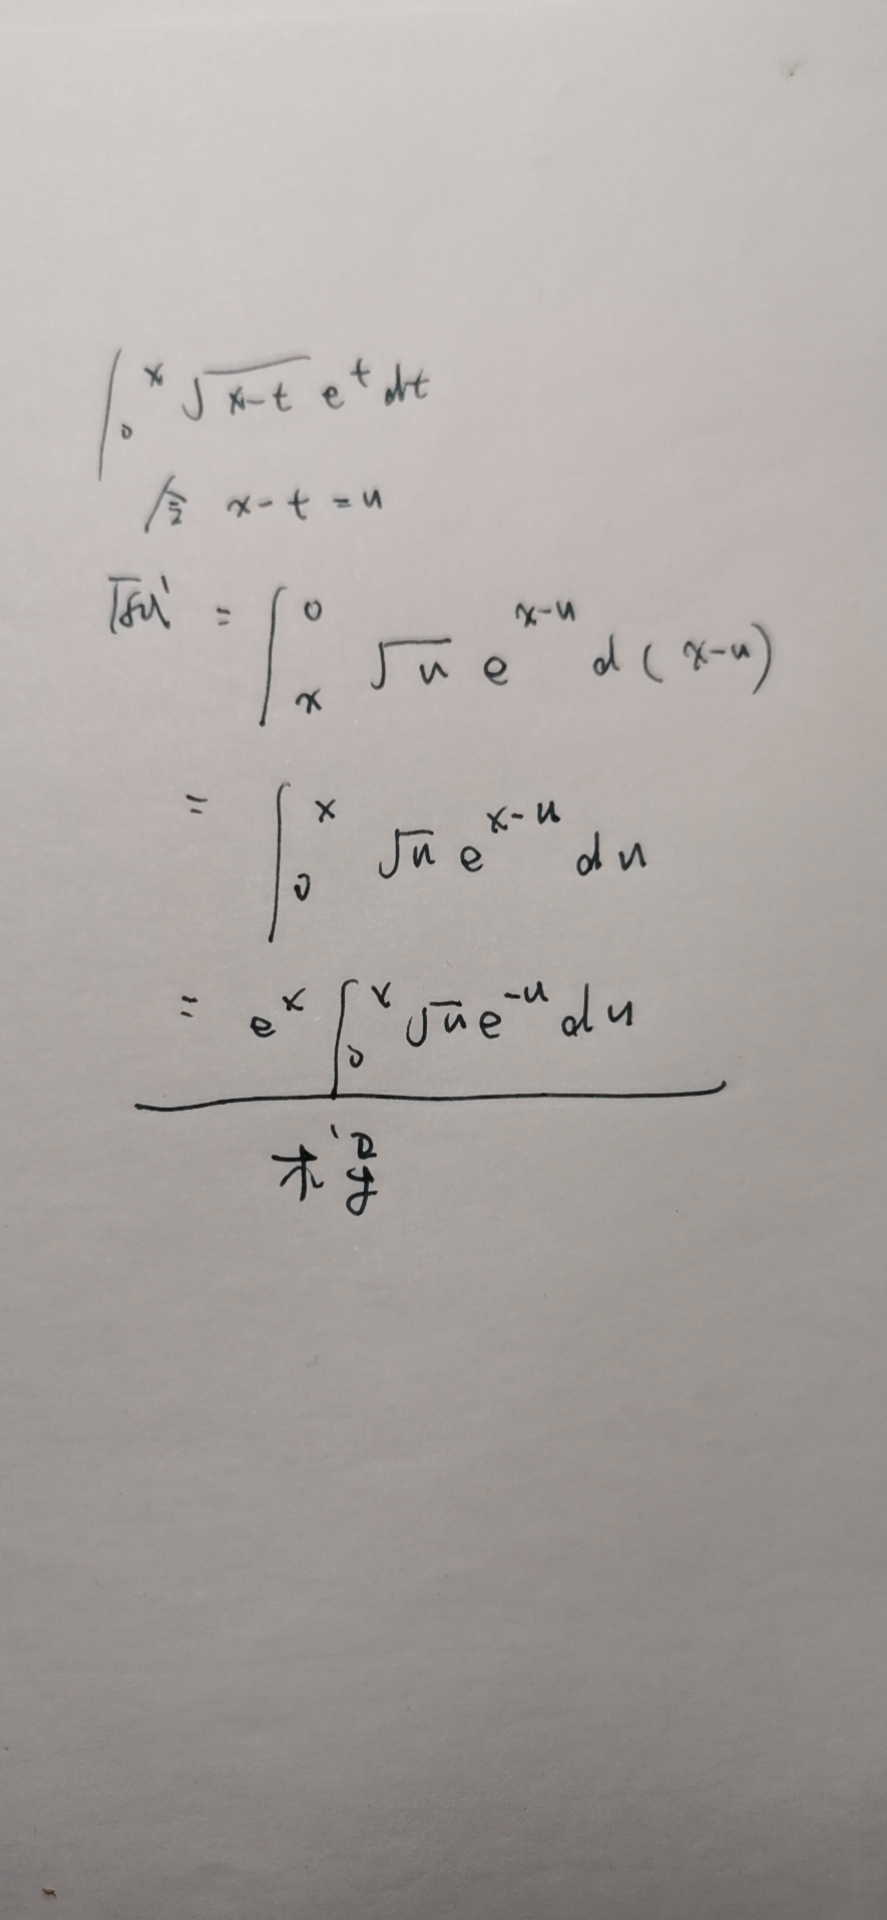 ∫₀ˣ √(x-t) eᵗ dt
令 x-t=u
原式 = ∫ₓ⁰ √u e^(x-u) d(x-u)
= ∫₀ˣ √u e^(x-u) du
= eˣ ∫₀ˣ √u e^(-u) du
求导